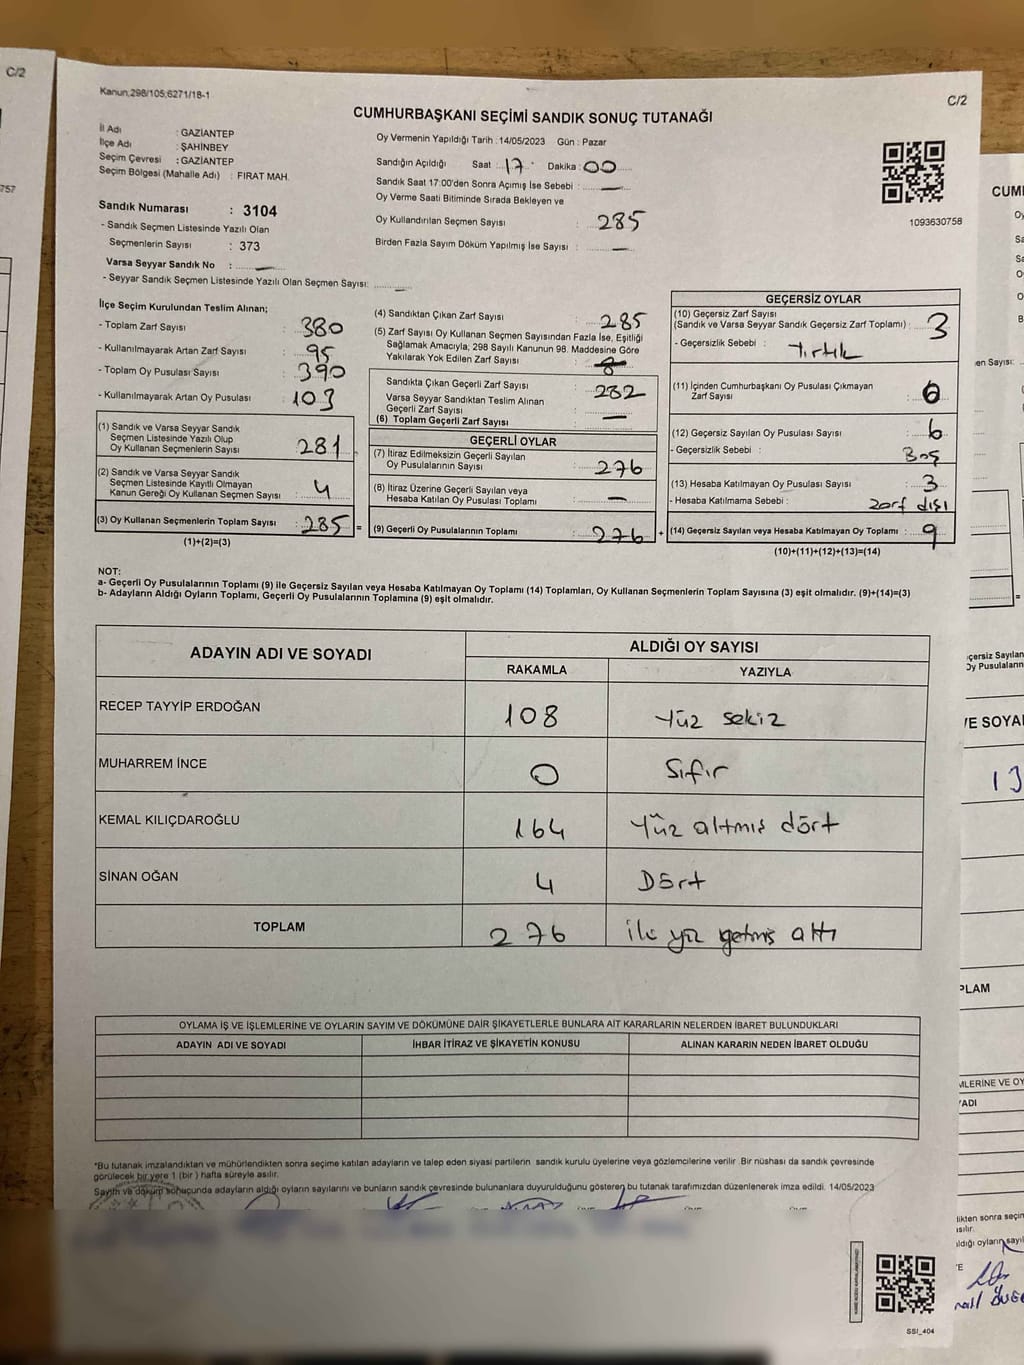 C/2
757
Kanun;298/105;6271/18-1
C/2
CUMHURBAŞKANI SEÇİMİ SANDIK SONUÇ TUTANAĞI
İl Adı : GAZİANTEP
İlçe Adı : ŞAHİNBEY
Seçim Çevresi : GAZİANTEP
Seçim Bölgesi (Mahalle Adı) : FIRAT MAH.
Sandık Numarası : 3104
- Sandık Seçmen Listesinde Yazılı Olan
Seçmenlerin Sayısı : 373
Varsa Seyyar Sandık No : —
- Seyyar Sandık Seçmen Listesinde Yazılı Olan Seçmen Sayısı: —
Oy Vermenin Yapıldığı Tarih : 14/05/2023 Gün : Pazar
Sandığın Açıldığı Saat : 17 Dakika : 00
Sandık Saat 17:00'den Sonra Açımış İse Sebebi : —
Oy Verme Saati Bitiminde Sırada Bekleyen ve
Oy Kullandırılan Seçmen Sayısı : 285
Birden Fazla Sayım Döküm Yapılmış İse Sayısı : —
1093630758
İlçe Seçim Kurulundan Teslim Alınan;
- Toplam Zarf Sayısı : 380
- Kullanılmayarak Artan Zarf Sayısı : 95
- Toplam Oy Pusulası Sayısı : 390
- Kullanılmayarak Artan Oy Pusulası : 103
(1) Sandık ve Varsa Seyyar Sandık
Seçmen Listesinde Yazılı Olup
Oy Kullanan Seçmenlerin Sayısı : 281
(2) Sandık ve Varsa Seyyar Sandık
Seçmen Listesinde Kayıtlı Olmayan
Kanun Gereği Oy Kullanan Seçmen Sayısı : 4
(3) Oy Kullanan Seçmenlerin Toplam Sayısı : 285 =
(1)+(2)=(3)
(4) Sandıktan Çıkan Zarf Sayısı : 285
(5) Zarf Sayısı Oy Kullanan Seçmen Sayısından Fazla İse, Eşitliği
Sağlamak Amacıyla; 298 Sayılı Kanunun 98. Maddesine Göre
Yakılarak Yok Edilen Zarf Sayısı :
Sandıkta Çıkan Geçerli Zarf Sayısı : 282
Varsa Seyyar Sandıktan Teslim Alınan
Geçerli Zarf Sayısı : —
(6) Toplam Geçerli Zarf Sayısı :
GEÇERLİ OYLAR
(7) İtiraz Edilmeksizin Geçerli Sayılan
Oy Pusulalarının Sayısı : 276
(8) İtiraz Üzerine Geçerli Sayılan veya
Hesaba Katılan Oy Pusulaları Toplamı : —
(9) Geçerli Oy Pusulalarının Toplamı : 276 +
GEÇERSİZ OYLAR
(10) Geçersiz Zarf Sayısı
(Sandık ve Varsa Seyyar Sandık Geçersiz Zarf Toplamı) : 3
- Geçersizlik Sebebi : Yırtık
(11) İçinden Cumhurbaşkanı Oy Pusulası Çıkmayan
Zarf Sayısı : 0
(12) Geçersiz Sayılan Oy Pusulası Sayısı : 6
- Geçersizlik Sebebi : Boş
(13) Hesaba Katılmayan Oy Pusulası Sayısı : 3
- Hesaba Katılmama Sebebi : zarf dışı
(14) Geçersiz Sayılan veya Hesaba Katılmayan Oy Toplamı : 9
(10)+(11)+(12)+(13)=(14)
NOT:
a- Geçerli Oy Pusulalarının Toplamı (9) ile Geçersiz Sayılan veya Hesaba Katılmayan Oy Toplamı (14) Toplamları, Oy Kullanan Seçmenlerin Toplam Sayısına (3) eşit olmalıdır. (9)+(14)=(3)
b- Adayların Aldığı Oyların Toplamı, Geçerli Oy Pusulalarının Toplamına (9) eşit olmalıdır.
ADAYIN ADI VE SOYADI
ALDIĞI OY SAYISI
RAKAMLA YAZIYLA
RECEP TAYYİP ERDOĞAN 108 Yüz sekiz
MUHARREM İNCE 0 Sıfır
KEMAL KILIÇDAROĞLU 164 Yüz altmış dört
SİNAN OĞAN 4 Dört
TOPLAM 276 iki yüz yetmiş altı
OYLAMA İŞ VE İŞLEMLERİNE VE OYLARIN SAYIM VE DÖKÜMÜNE DAİR ŞİKAYETLERLE BUNLARA AİT KARARLARIN NELERDEN İBARET BULUNDUKLARI
ADAYIN ADI VE SOYADI İHBAR İTİRAZ VE ŞİKAYETİN KONUSU ALINAN KARARIN NEDEN İBARET OLDUĞU
*Bu tutanak imzalandıktan ve mühürlendikten sonra seçime katılan adayların ve talep eden siyasi partilerin sandık kurulu üyelerine veya gözlemcilerine verilir. Bir nüshası da sandık çevresinde
görülecek bir yere 1 (bir) hafta süreyle asılır.
Sayım ve döküm sonucunda adayların aldığı oyların sayılarını ve bunların sandık çevresinde bulunanlara duyurulduğunu gösteren bu tutanak tarafımızdan düzenlenerek imza edildi. 14/05/2023
SSI_404
CUM
en Sayısı:
çersiz Sayılan
Oy Pusulaların
VE SOYA
13
PLAM
MLERİNE VE OY
YADI
likten sonra seçin
asılır.
aldığı oyların sayıl